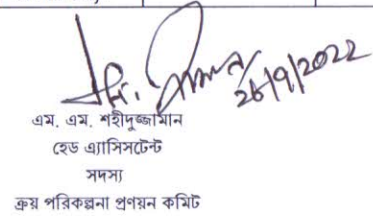 26/9/2022
এম. এম. শহীদুজ্জামান
হেড এ্যাসিসটেন্ট
সদস্য
ক্রয় পরিকল্পনা প্রণয়ন কমিট